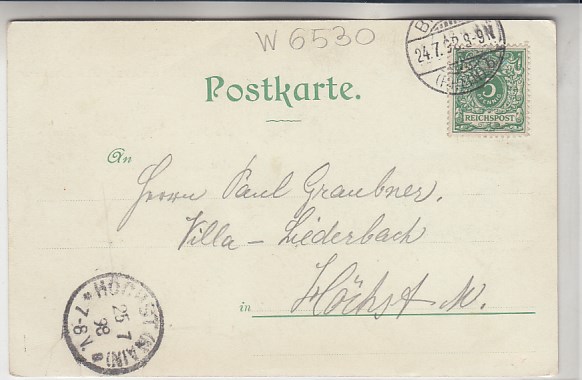 W 6530
24.7.98.8-9N.
5
REICHSPOST
Postkarte.
An
Herrn Paul Graubner.
Villa - Liederbach
in Höchst M.
HÖCHST (MAIN)
25
7
98
7-8V.